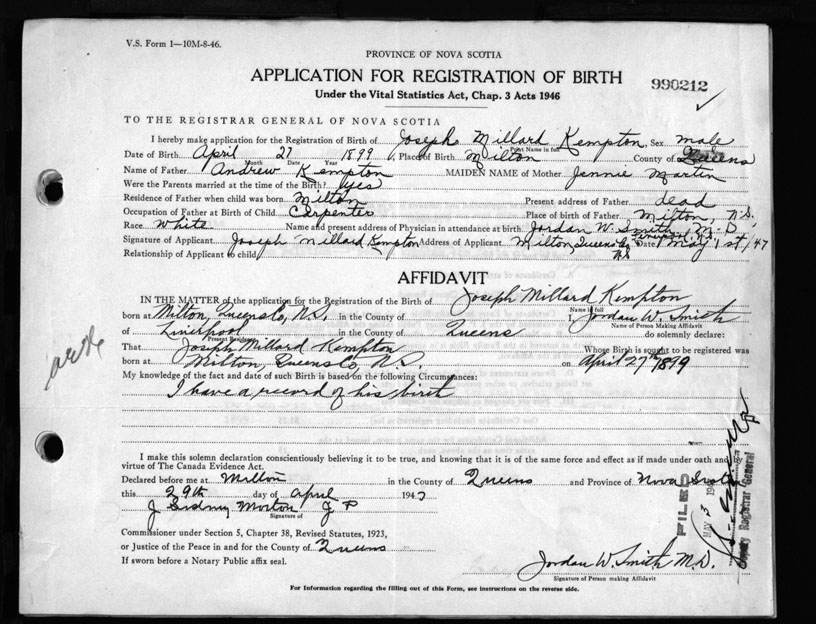 V.S. Form 1—10M-8-46.
PROVINCE OF NOVA SCOTIA
APPLICATION FOR REGISTRATION OF BIRTH
990212
Under the Vital Statistics Act, Chap. 3 Acts 1946
TO THE REGISTRAR GENERAL OF NOVA SCOTIA
I hereby make application for the Registration of Birth of Joseph Millard Kempton, Sex male
Print Name in full
Date of Birth April 27 1899, Place of Birth Milton County of Queens
Month Date Year
Name of Father Andrew Kempton MAIDEN NAME of Mother Jennie Martin
Were the Parents married at the time of the Birth? yes
Residence of Father when child was born Milton Present address of Father dead
Occupation of Father at Birth of Child Carpenter Place of birth of Father Milton, N.S.
Race White Name and present address of Physician in attendance at birth Jordan W. Smith, M.D.,
Liverpool, N.S.
Signature of Applicant Joseph Millard Kempton Address of Applicant Milton, Queens Co. N.S. Date May 1st/47
Relationship of Applicant to child
AFFIDAVIT
IN THE MATTER of the application for the Registration of the Birth of Joseph Millard Kempton
Name in full
born at Milton, Queens Co, N.S. in the County of I, Jordan W. Smith
Name of Person Making Affidavit
of Liverpool in the County of Queens do solemnly declare:
Present Residence
That Joseph Millard Kempton Whose Birth is sought to be registered was
born at Milton, Queens Co, N.S. on April 27th 1899
My knowledge of the fact and date of such Birth is based on the following Circumstances:
I have a record of his birth
I make this solemn declaration conscientiously believing it to be true, and knowing that it is of the same force and effect as if made under oath and
virtue of The Canada Evidence Act.
Declared before me at Milton in the County of Queens and Province of Nova Scotia
this 29th day of April 1947
J Sidney Morton J P
Signature of
Commissioner under Section 5, Chapter 38, Revised Statutes, 1923,
or Justice of the Peace in and for the County of Queens
If sworn before a Notary Public affix seal.
FILED
MAY 3 194
Deputy Registrar General
Jordan W. Smith M.D.
Signature of Person making Affidavit
For Information regarding the filling out of this Form, see instructions on the reverse side.